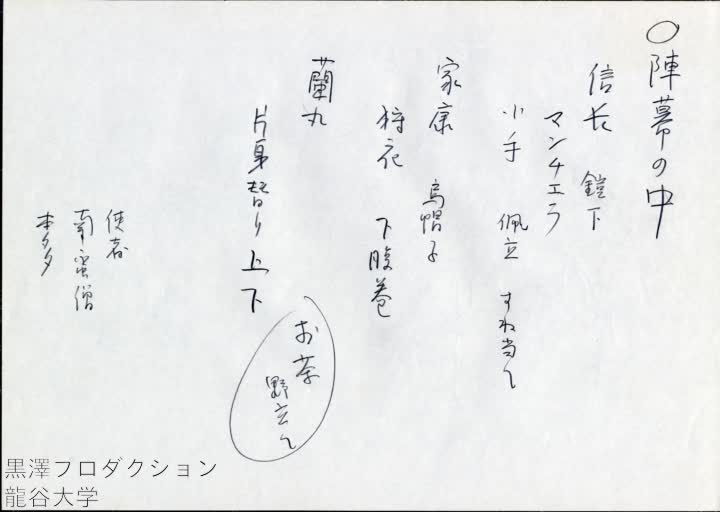 ○陣幕の中
信長 鎧下
マンチエラ
小手 佩立 すね当て
家康 烏帽子
狩衣 下腹巻
蘭丸
片身替り上下
お茶
野立て
使者
南蛮僧
本多
黒澤プロダクション
龍谷大学